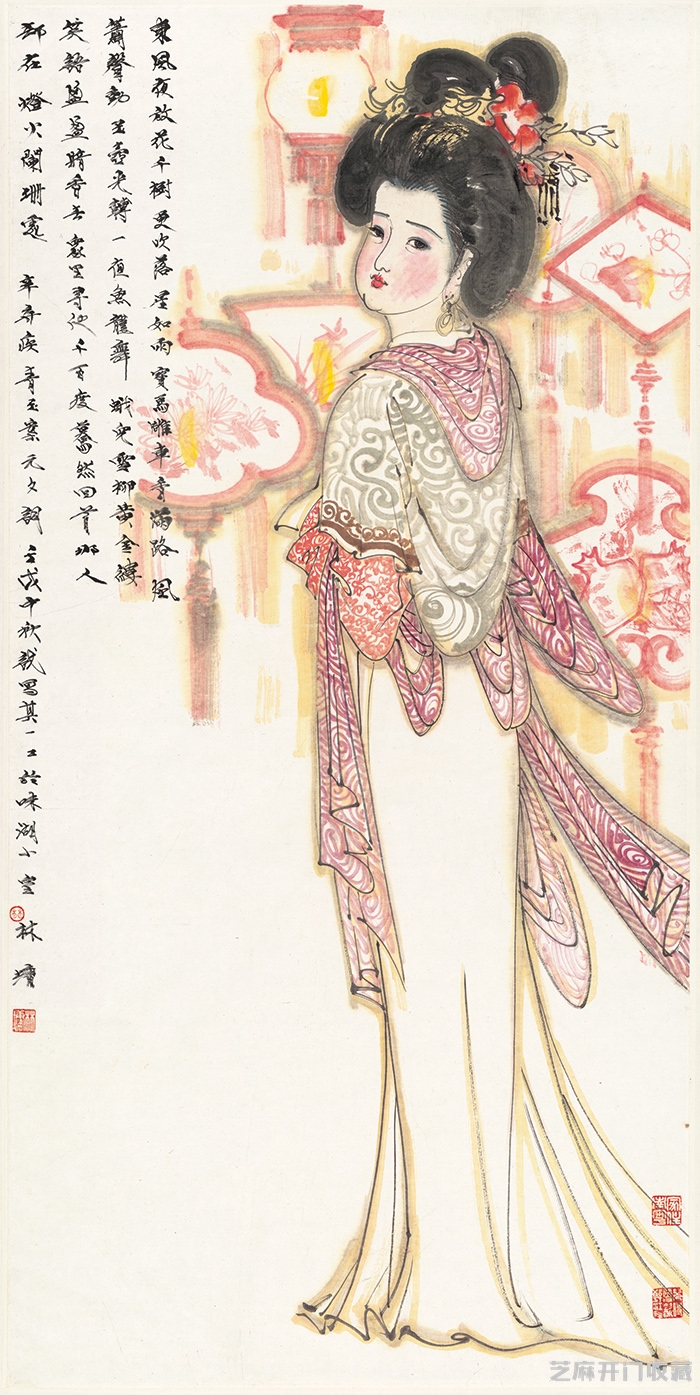 東風夜放花千樹更吹落星如雨寶馬雕車香滿路風
蕭聲動玉壺光轉一夜魚龍舞 蛾兒雪柳黃金縷
笑語盈盈暗香去 衆里尋他千百度驀然回首那人
却在燈火闌珊處 辛弃疾青玉案元夕詞 壬戌中秋寫其一二於味湖小室 林墉
芝麻开门收藏